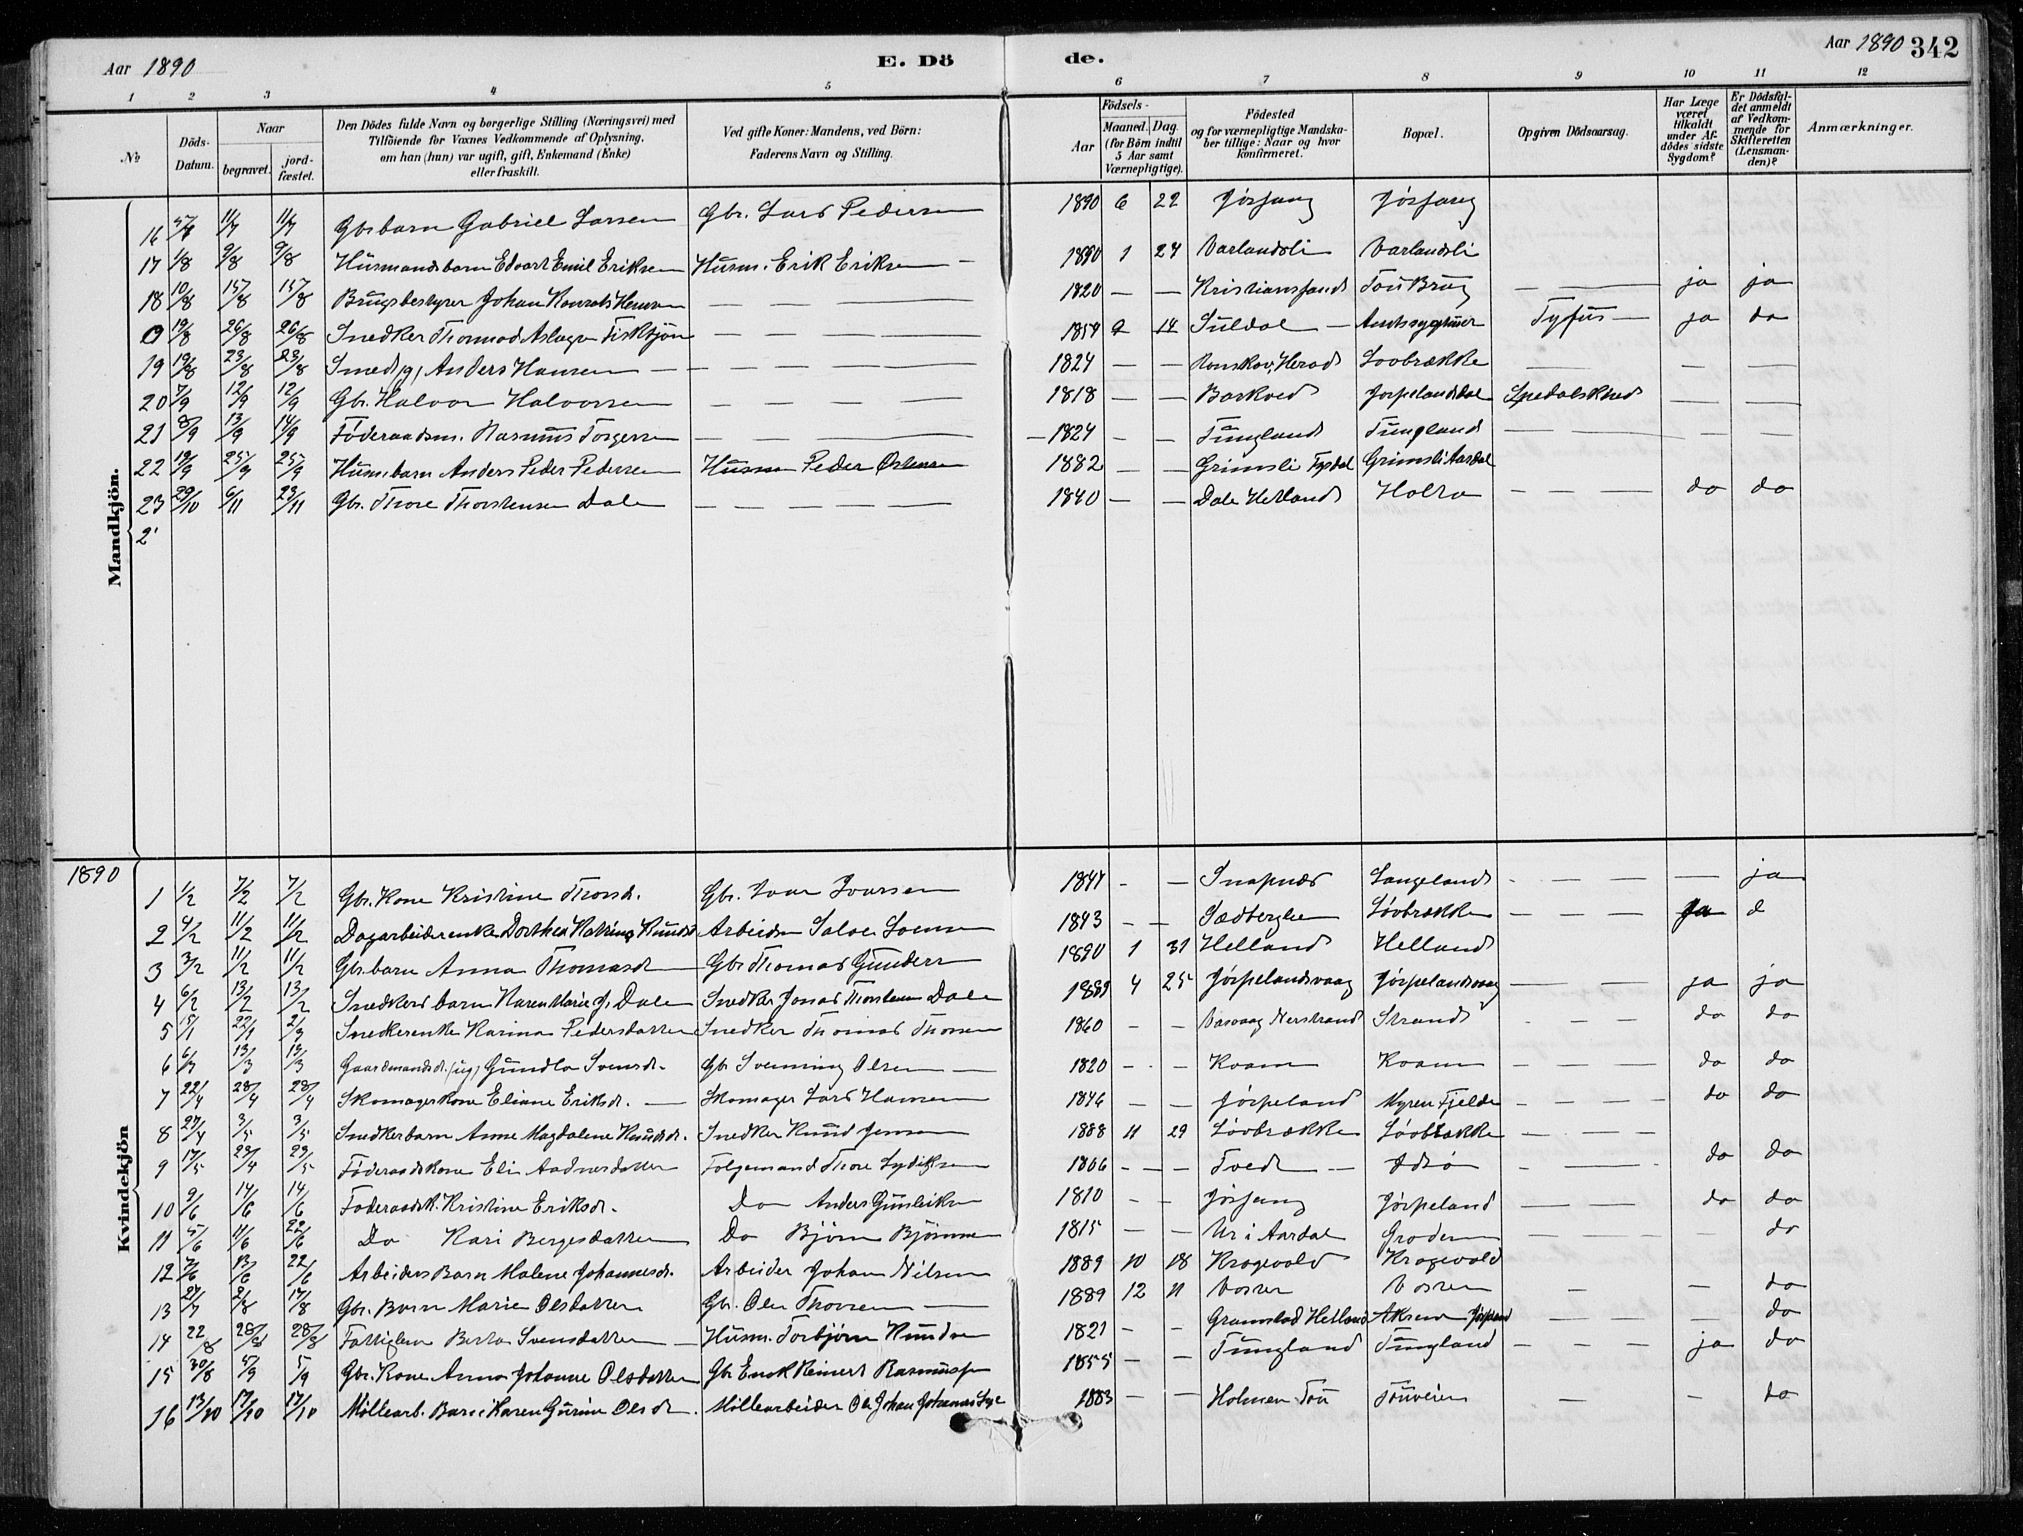 Aar 1890 E. Dö de. Aar 1890 342
1 2 3 4 5 6 7 8 9 10 11 12
№ Döds-Datum. Naar begravet. jord-fæstet. Den Dödes fulde Navn og borgerlige Stilling (Næringsvei) med Tilföiende for Voxnes Vedkommende af Oplysning, om han (hun) var ugift, gift, Enkemand (Enke) eller fraskilt. Ved gifte Koner: Mandens, ved Börn: Faderens Navn og Stilling. Födsels- Aar Maaned. Dag. (for Börn indtil 5 Aar samt Værnepligtige). Födested og for værnepligtige Mandska-ber tillige: Naar og hvor konfirmeret. Bopæl. Opgiven Dödsaarsag. Har Læge været tilkaldt under Af-dödes sidste Sygdom? Er Dödsfal-det anmeldt af Vedkom-mende for Skifteretten (Lensman-den)? Anmærkninger.
Mandkjön.
16 11/7 11/7 Gbrbarn Gabriel Larsen Gbr. Lars Pedersen 1890 6 22 Jøssang Jøssang
17 1/8 9/8 9/8 Husmandsbarn Edvart Emil Eriksen Husm. Erik Eriksen — 1890 1 24 Varlandsli Varlandsli
18 10/8 15/8 15/8 Brugsbestyrer Johan Konrads — — — 1820 — — Kristiansand Tou Brug — — ja ja
0 19/8 26/8 26/8 Snedker Thormod Aslagsn — — — 1854 14 Suldal — Amtssygehuset Tyfus — ja do
19 19/8 23/8 23/8 Smed (g) Anders Hansen — — — — 1824 — — Herad Løvbrække — — —
20 7/9 12/9 12/9 Gbr. Halvor Halvorsen — — — 1818 — — Barkved Jørpelandsdal Spedalskhed — —
21 8/9 13/9 14/9 Föderaadsm. Rasmus Torgersen — — — — 1824 — — Tungland Tungland — — —
22 19/9 25/9 25/9 Husm.barn Anders Peder Pedersen Husm Peder Østensen 1882 — — Grimsli Fysdal Grimsli Aardal
23 29/10 6/11 23/11 Gbr. Thore Thorstensen Dale — — — 1840 — — Dale Hetland Holta — — — do do
2
1890
Kvindekjön
1 1/2 7/2 7/2 Gbr. Kone Kristine Thorsd. Gbr. Ivar Ivarsen 1847 — — Langeland — — — — ja
2 4/2 11/2 11/2 Dagarbeiderenke Dorthea Katrine Knudsd Arbeider 1843 — — Sædberghe Løvbrække — — — Ja d
3 3/2 11/2 11/2 Gbr.barn Anna Thomasd Gbr Thomas Gunders 1890 1 31 Helland Helland
4 6/2 13/2 13/2 Snedkers barn Karen Marie J. Dale Snedker Jonas Thorstensen Dale 1889 4 25 Jørpelandsvaag Jørpelandsvaag — — ja ja
5 Snedkerenke Karina Pedersdatter Snedker Thomas Thorsen 1860 — — Nerstrand Strand — — — do do
6 6/3 13/3 13/3 Gaardmandsd. (ug) Gundla Svensd. Gbr Svenning Olsen — 1820 — — Kvam Kvam — — — do do
7 22/4 28/4 28/4 Skomagerkone Eliane Eriksd. — Skomager Lars Hansen 1846 — — Jørpeland Myren Fjelde — — — do do
8 27/4 3/5 3/5 Snedkerbarn Anne Magdalene Knudsd. Snedker Knud Jensen 1888 11 29 Løvbrække Løvbrække — — —
9 17/5 23/4 23/5 Föderaadskone Eli Aadnesdatter Folgemand Thore 1806 — — Tved — Idsø — — — do do
10 9/6 14/6 14/6 Foderaadsk. Kristine Eriksd. Do Anders Gunleiksen 1810 — — Jøssang Jørpeland — — do do
11 5/6 11/6 22/6 Do Kari Bergesdatter Do Bjørn Bjørnsen 1815 — — Ur i Aardal Groden — — — — do
12 7/6 13/6 22/6 Arbeiders Barn Malene Johannesd. Arbeider Johan Nilsen 1889 10 18 Kragevold Kragevold
13 27/7 2/8 17/8 Gbr. Barn Marie Olsdatter Gbr. Ole Thorsen — 1889 12 11 Vostre Vostre — — do
14 22/8 28/8 28/8 Fattiglem Berta Svensdatter — Husm. Torbjørn Knudsen 1821 — — Gramstad Hetland Jørpeland — — do
15 30/8 5/9 5/9 Gbr. Kone Anna Johanne Olsdatter Gbr Enok Reinert Rasmusen 1855 — — Tungland Tungland — — — ja do
16 13/10 17/10 17/10 Möllearb. Barn Karen Gurine Olsd. Möllearbeider Ole Johan Johannes 1883 — — Holmen Tou Touveien — — do